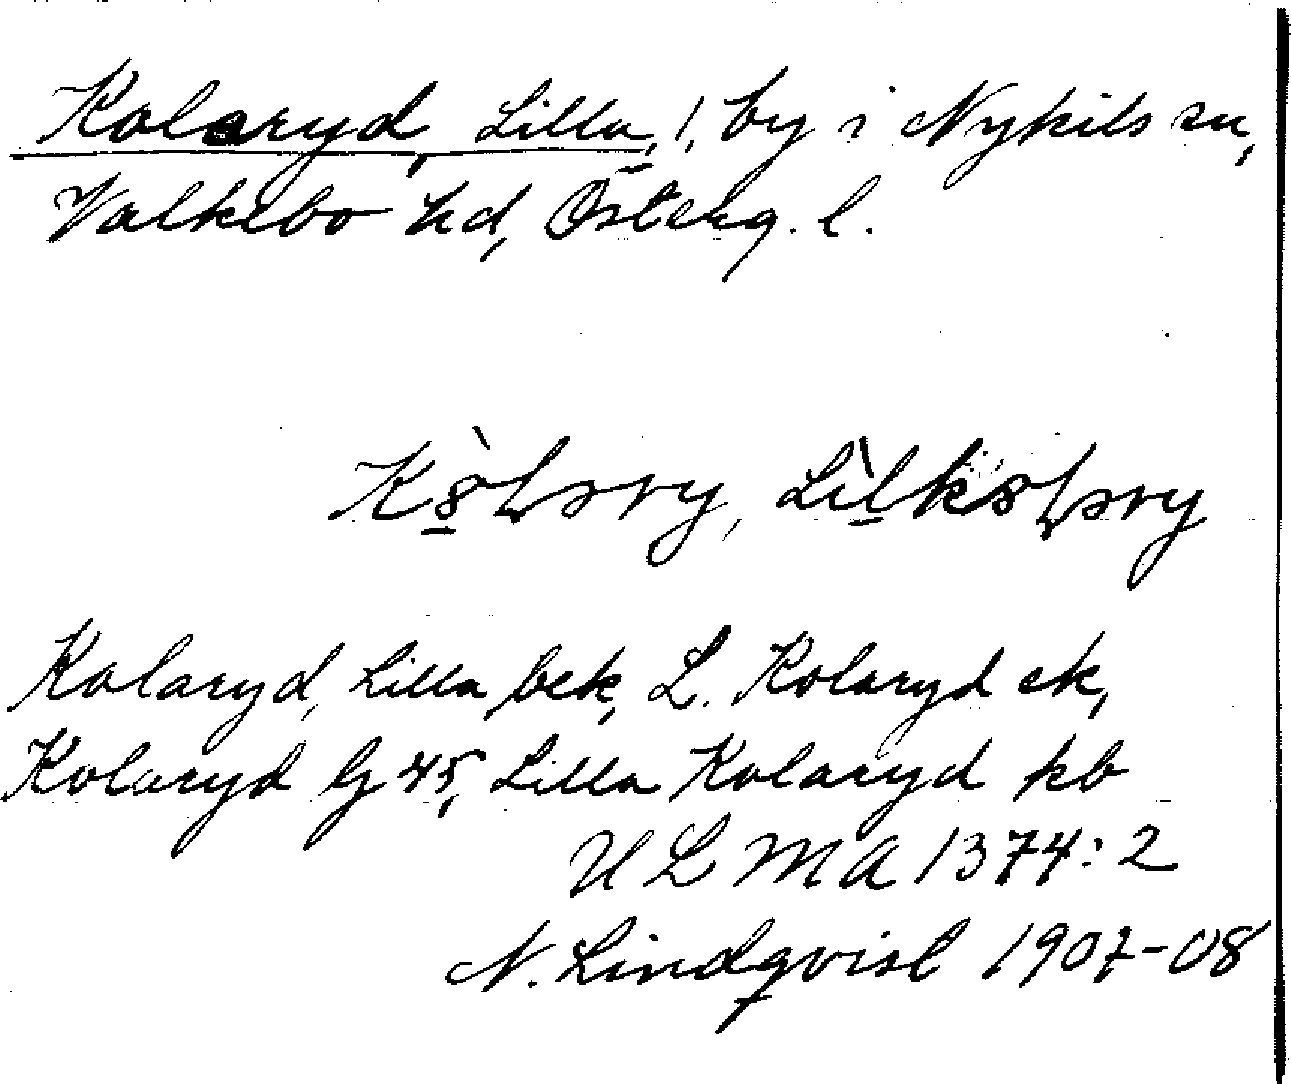 Kolaryd, Lilla, 1, by i Nykils sn,
Valkebo hd, Österg. l.
Kolaryd, Lilla bek, L. Kolaryd ek,
Kolaryd Gj 45, Lilla Kolaryd kb
ULMA 1374:2
N. Lindqvist 1907-08